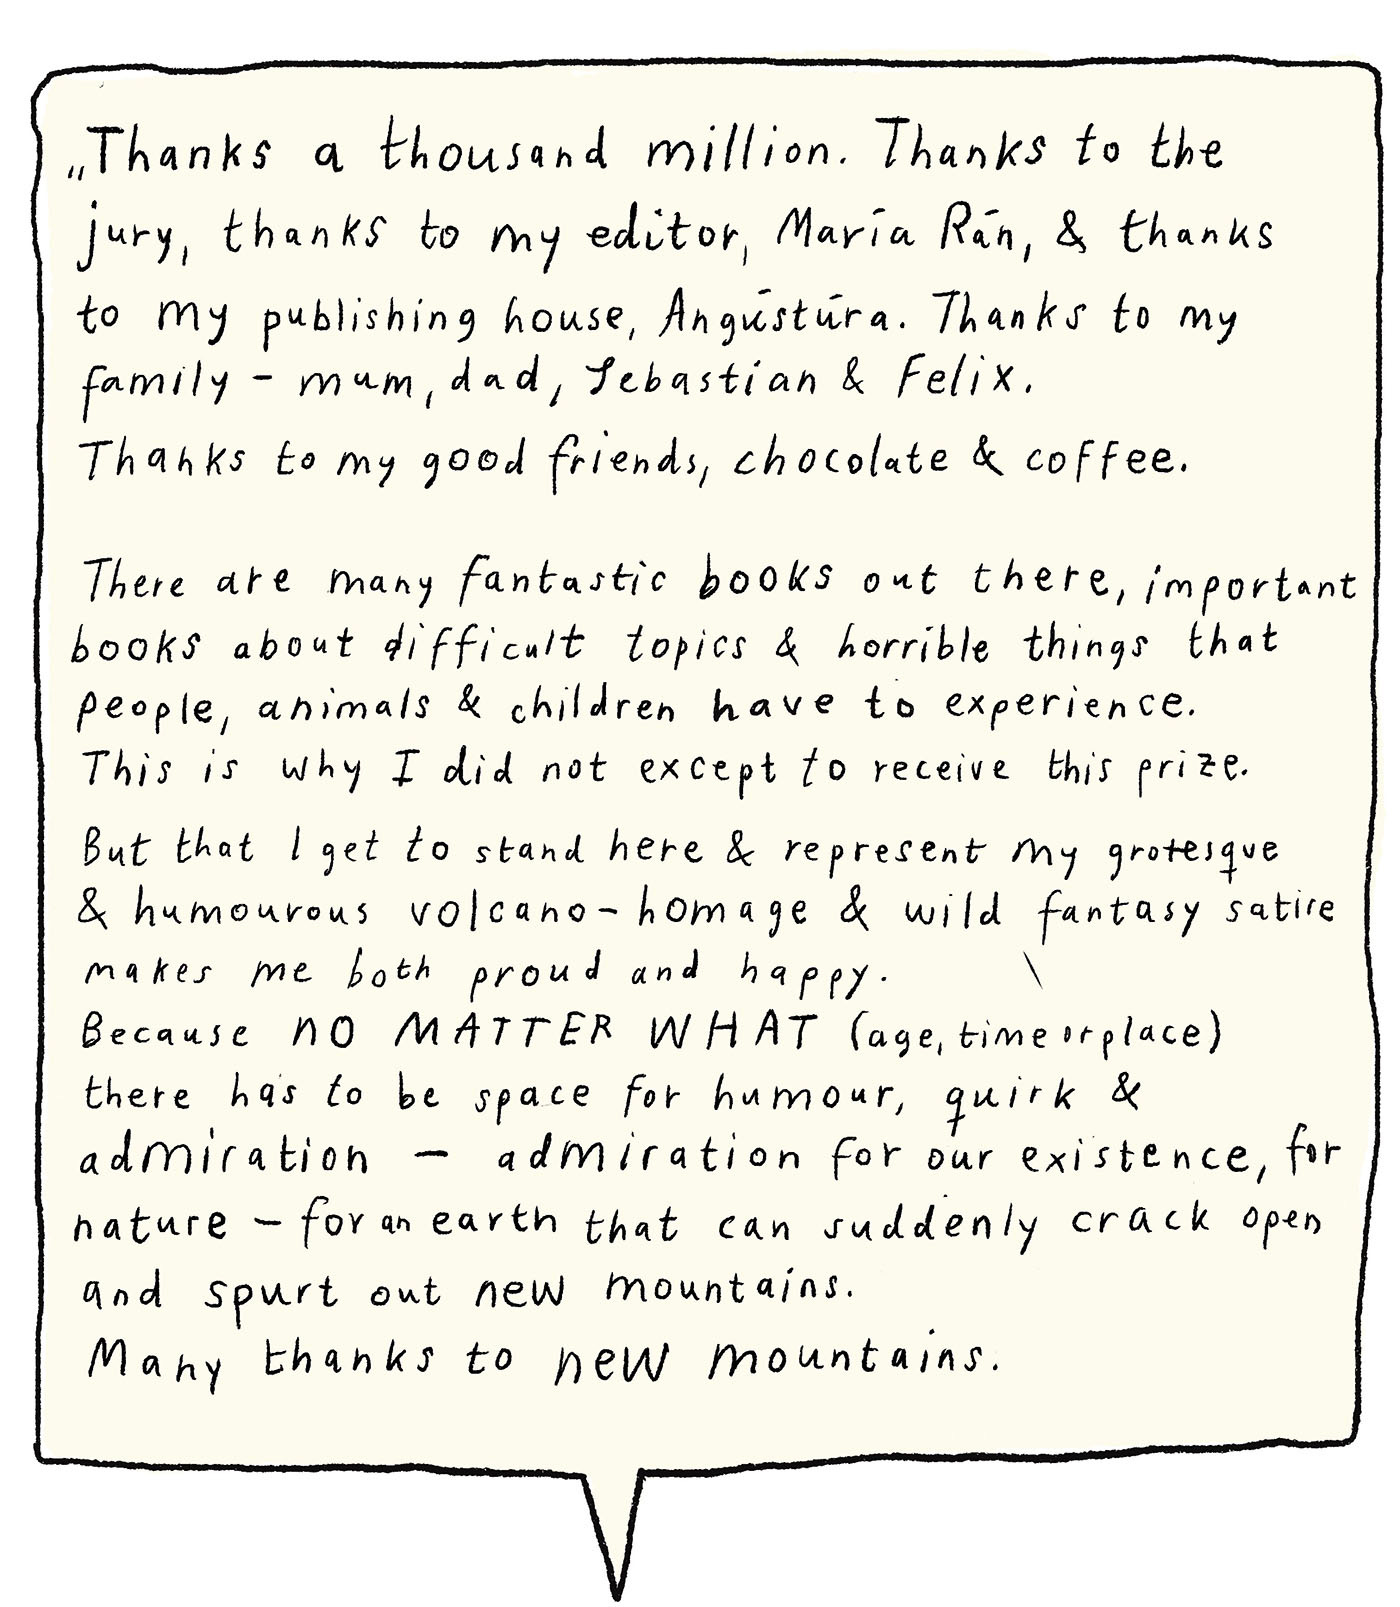 „Thanks a thousand million. Thanks to the
jury, thanks to my editor, María Rán, & thanks
to my publishing house, Angústúra. Thanks to my
family – mum, dad, Sebastian & Felix.
Thanks to my good friends, chocolate & coffee.
There are many fantastic books out there, important
books about difficult topics & horrible things that
people, animals & children have to experience.
This is why I did not except to receive this prize.
But that I get to stand here & represent my grotesque
& humourous volcano-homage & wild fantasy satire
makes me both proud and happy.
Because NO MATTER WHAT (age, time or place)
there has to be space for humour, quirk &
admiration – admiration for our existence, for
nature – for an earth that can suddenly crack open
and spurt out new mountains.
Many thanks to new mountains.